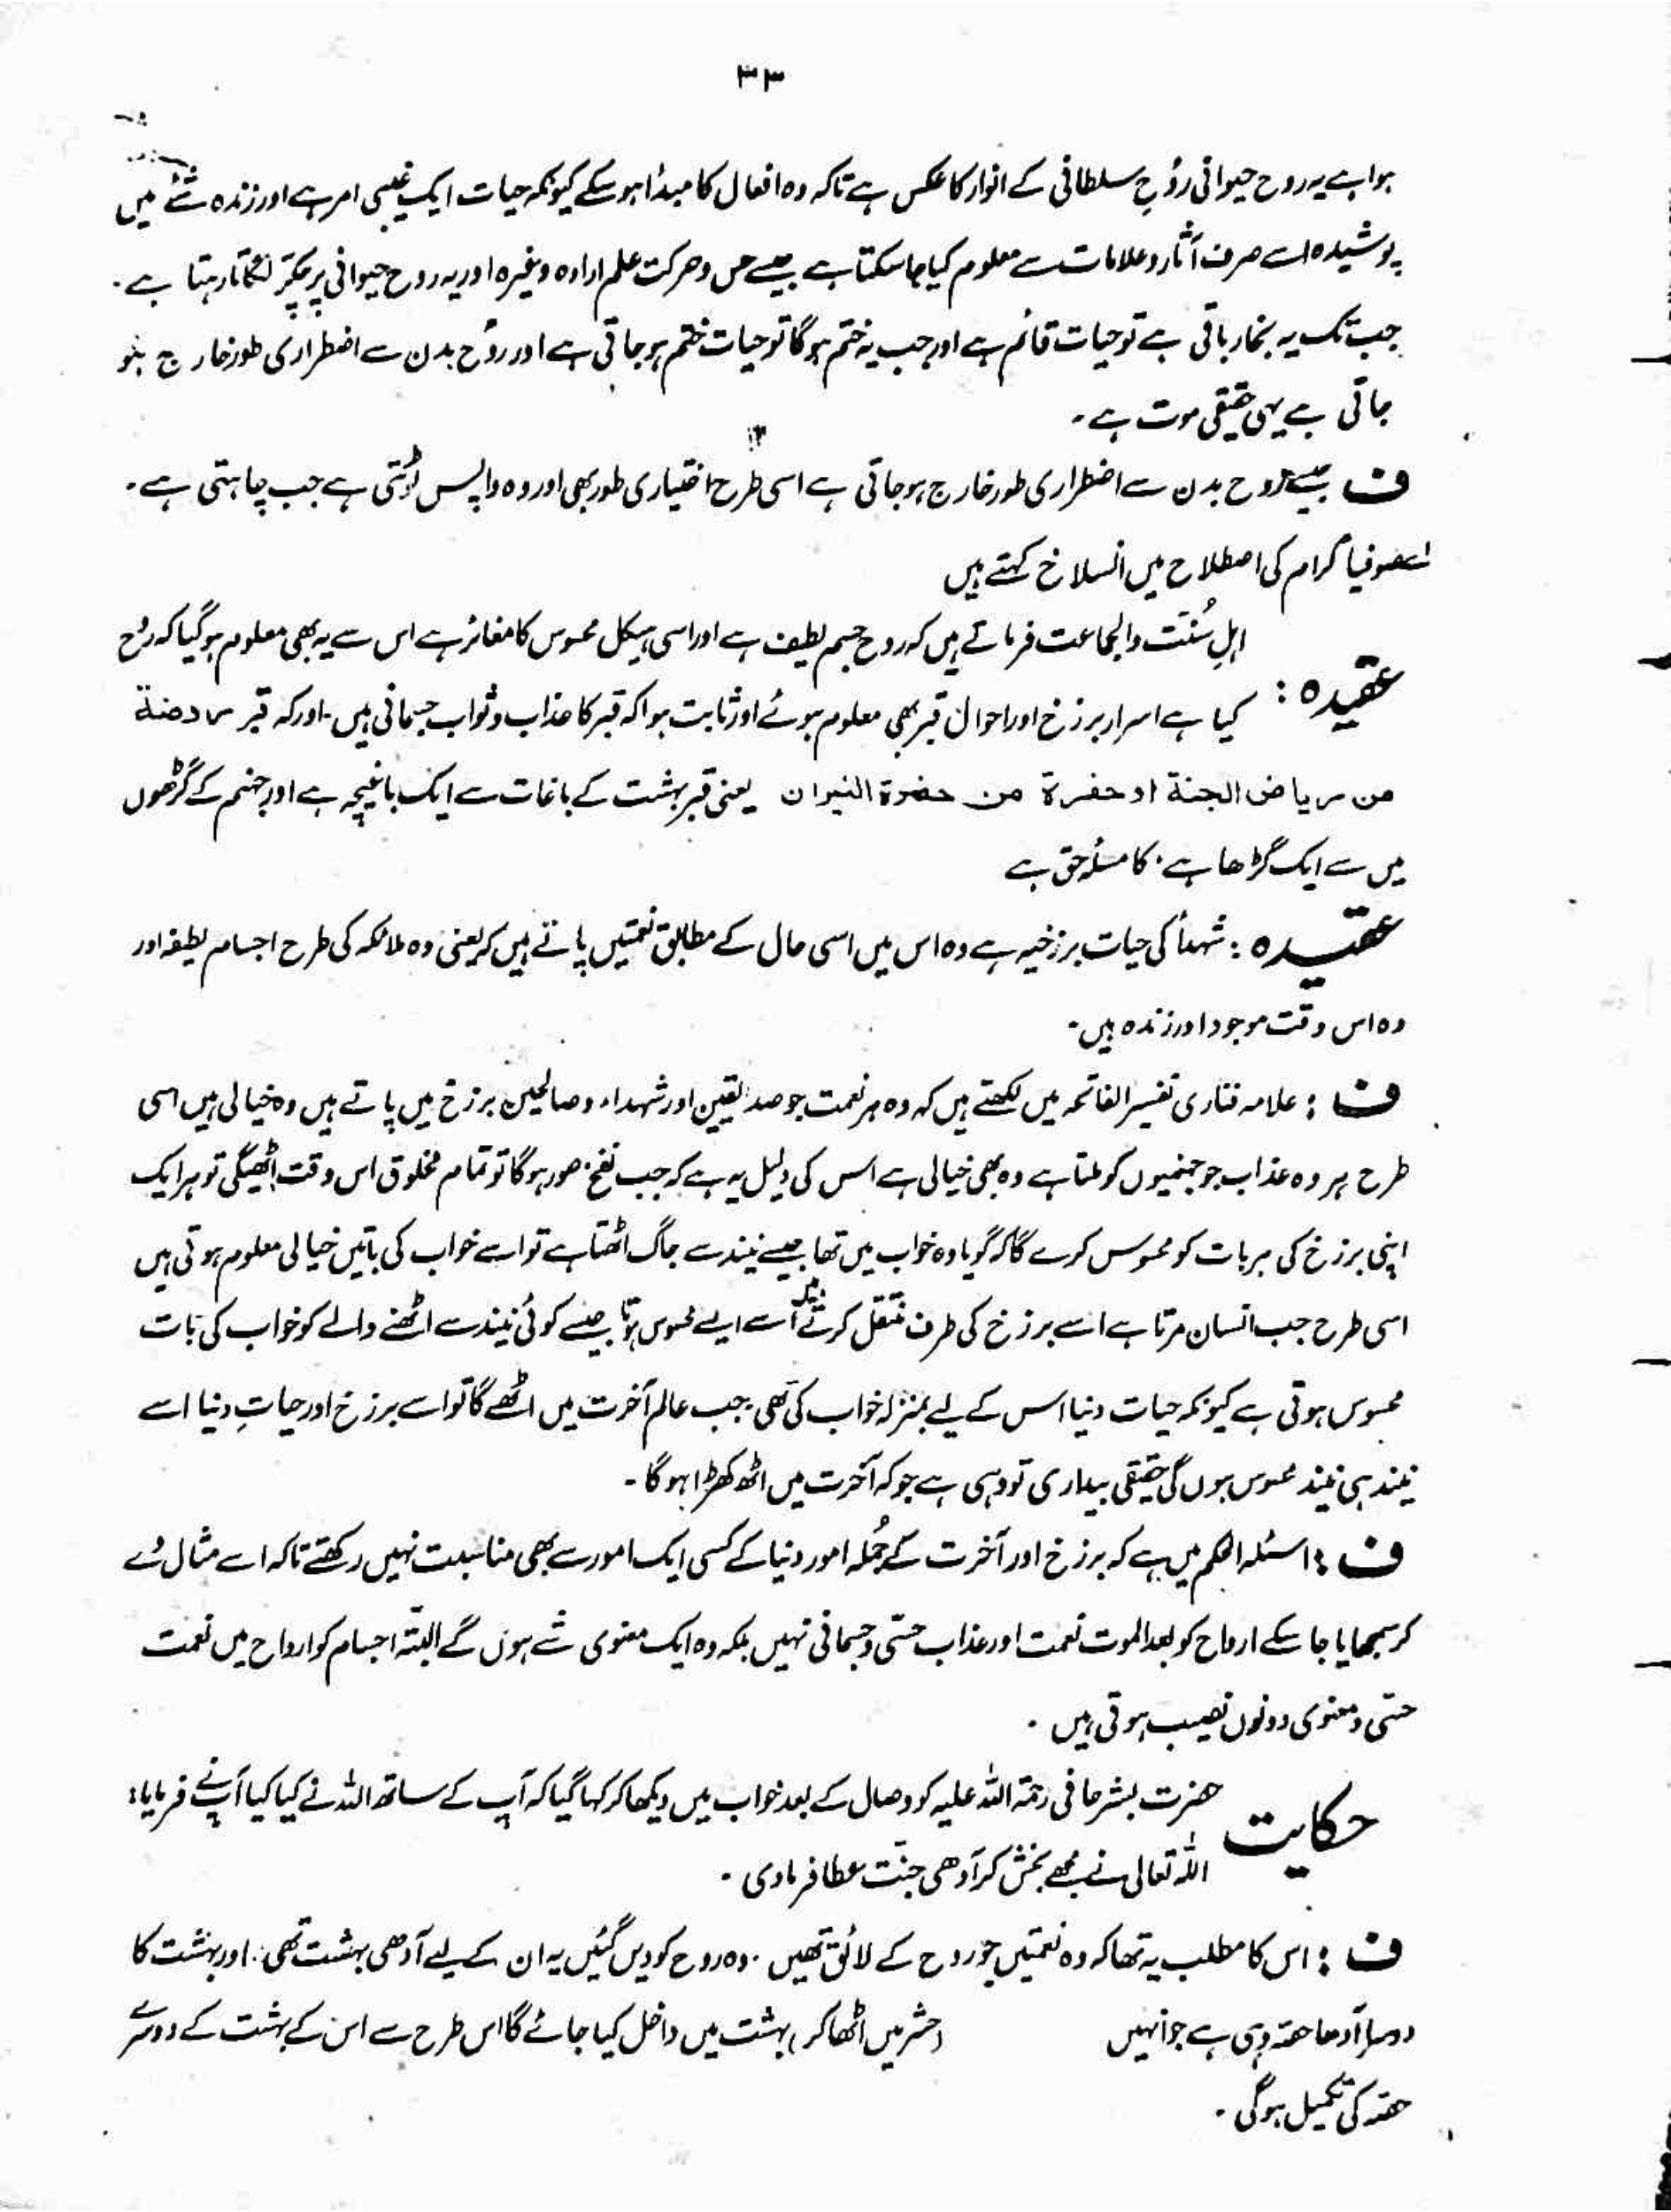 ۳۳
ہوا ہے یہ روح حیوانی رؤحِ سلطانی کے انوار کا عکس ہے تاکہ وہ افعال کا مبدأ ہو سکے کیونکہ حیات ایک غیبی امر ہے اور زندہ شئے میں
پوشیدہ اسے صرف آثار و علامات سے معلوم کیا جا سکتا ہے جیسے حس و حرکت علم ارادہ وغیرہ اور یہ روح حیوانی پر چکّر لگاتا رہتا ہے۔
جب تک یہ بخار باقی ہے تو حیات قائم ہے اور جب یہ ختم ہو گا تو حیات ختم ہو جاتی ہے اور روُح بدن سے اضطراری طور خارج ہو
جاتی ہے یہی حقیقی موت ہے۔
ف جیسے روح بدن سے اضطراری طور خارج ہو جاتی ہے اسی طرح اختیاری طور بھی اور وہ واپس لوٹتی ہے جب چاہتی ہے۔
اسے صوفیاً کرام کی اصطلاح میں انسلاخ کہتے ہیں
اہلِ سُنّت والجماعت فرماتے ہیں کہ روح جسم لطیف ہے اور اسی ہیکل محسوس کا مغائر ہے اس سے یہ بھی معلوم ہو گیا کہ روح
عقیدہ : کیا ہے اسرار برزخ اور احوالِ قبر بھی معلوم ہوئے اور ثابت ہوا کہ قبر کا عذاب و ثواب جسمانی ہیں۔ اور کہ قبر روضة
من رياض الجنة او حفرة من حضرة النيران یعنی قبر بہشت کے باغات سے ایک باغیچہ ہے اور جہنم کے گڑھوں
میں سے ایک گڑھا ہے۔ کا مسئلہ حق ہے
عقیدہ : شہداً کی حیات برزخیہ ہے وہ اس میں اسی حال کے مطابق نعمتیں پاتے ہیں کہ یعنی وہ ملائکہ کی طرح اجسام لطیفہ اور
وہ اس وقت موجود اور زندہ ہیں۔
ف : علامہ فناری تفسیر الفاتحہ میں لکھتے ہیں کہ وہ ہر نعمت جو صدیقین اور شہداء و صالحین برزخ میں پاتے ہیں وہ خیالی ہیں اسی
طرح ہر وہ عذاب جو جہنمیوں کو ملتا ہے وہ بھی خیالی ہے اس کی دلیل یہ ہے کہ جب نفخ صور ہو گا تو تمام مخلوق اس وقت اٹھیگی تو ہر ایک
اپنی برزخ کی ہر بات کو محسوس کرے گا کہ گویا وہ خواب میں تھا جیسے نیند سے جاگ اٹھتا ہے تو اسے خواب کی باتیں خیالی معلوم ہوتی ہیں
اسی طرح جب انسان مرتا ہے اسے برزخ کی طرف منتقل کرتے ہیں اسے ایسے محسوس ہوتا جیسے کوئی نیند سے اٹھنے والے کو خواب کی بات
محسوس ہوتی ہے کیونکہ حیات دنیا اس کے لیے بمنزلہ خواب کی تھی۔ جب عالم آخرت میں اٹھے گا تو اسے برزخ اور حیاتِ دنیا اسے
نیند ہی نیند محسوس ہوں گی حقیقی بیداری تو وہی ہے جو کہ آخرت میں اٹھ کھڑا ہو گا۔
ف : اسئلہ الحکم میں ہے کہ برزخ اور آخرت کے جُملہ امور دنیا کے کسی ایک امور سے بھی مناسبت نہیں رکھتے تاکہ اسے مثال دے
کر سمجھایا جا سکے ارواح کو بعد الموت نعمت اور عذاب حسّی و جسمانی نہیں بلکہ وہ ایک معنوی شے ہوں گے البتّہ اجسام کو ارواح میں نعمت
حسّی و معنوی دونوں نصیب ہوتی ہیں۔
حکایت حضرت بشر حافی رحمۃ اللہ علیہ کو وصال کے بعد خواب میں دیکھا کر کہا گیا کہ آپ کے ساتھ اللہ نے کیا کیا آپ نے فرمایا:
اللہ تعالیٰ نے مجھے بخش کر آدھی جنّت عطا فرما دی۔
ف : اس کا مطلب یہ تھا کہ وہ نعمتیں جو روح کے لائق تھیں۔ وہ روح کو دیں گئیں یہ ان کے لیے آدھی بہشت تھی۔ اور بہشت کا
دوسرا آدھا حصّہ وہی ہے جو انہیں (حشر میں اٹھا کر) بہشت میں داخل کیا جائے گا اس طرح سے اس کے بہشت کے دوسرے
حصّہ کی تکمیل ہو گی۔